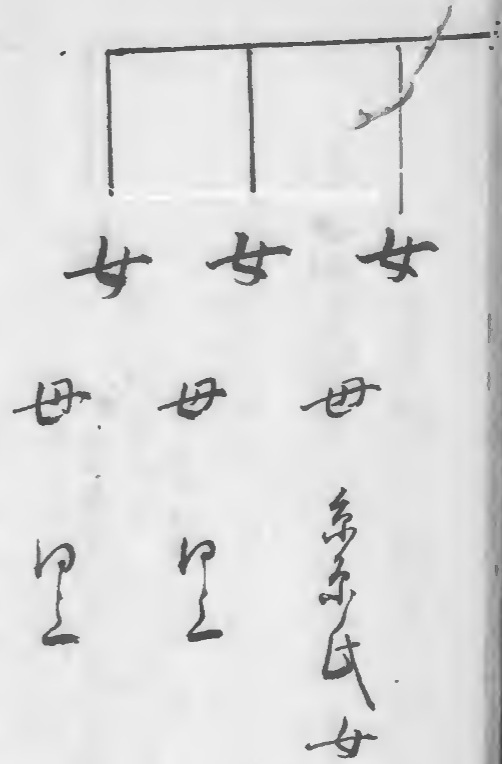 女
母
氏女
女
母 同上
女
母 同上